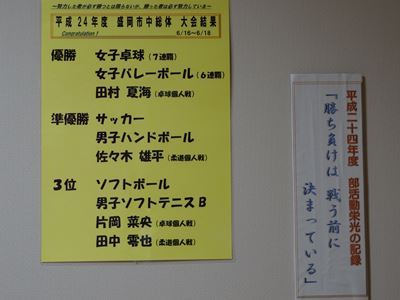 ～努力した者が必ず勝つとは限らないが、勝った者は必ず努力している～
平成24年度 盛岡市中総体 大会結果
Congratulation！ 6/16～6/18
優勝 女子卓球(7連覇)
女子バレーボール(6連覇)
田村 夏海(卓球個人戦)
準優勝 サッカー
男子ハンドボール
佐々木 雄平(柔道個人戦)
3位 ソフトボール
男子ソフトテニスB
片岡 菜央(卓球個人戦)
田中 零也(柔道個人戦)
平成二十四年度 部活動栄光の記録
「勝ち負けは 戦う前に
決まっている」